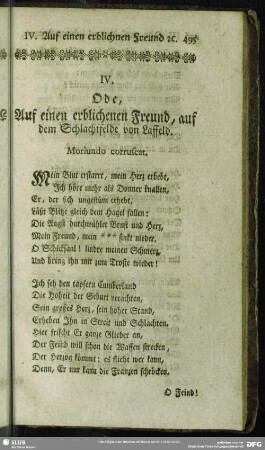 IV. Auf einen erblichnen Freund ꝛc. 495
IV.
Ode,
Auf einen erblichenen Freund, auf
dem Schlachtfelde von Laffeld.
Moriundo corruscat.
Mein Blut erstarrt, mein Herz erbebt,
Ich höre mehr als Donner knallen,
Er, der sich ungestüm erhebt,
Läßt Blitze gleich dem Hagel fallen:
Die Angst durchwühlet Brust und Herz,
Mein Freund, mein *** sinkt nieder.
O Schicksaal! lindre meinen Schmerz,
Und bring ihn mir zum Troste wieder!
Ich seh den tapfern Cumberland
Die Hoheit der Geburt verachten,
Sein großes Herz, sein hoher Stand,
Erheben Ihn in Streit und Schlachten.
Hier frischt Er ganze Glieder an,
Der Feind will schon die Waffen strecken,
Der Herzog kömmt: es flieht wer kann,
Denn, Er nur kann die Franzen schröcken.
O Feind!
SLUB
DFG